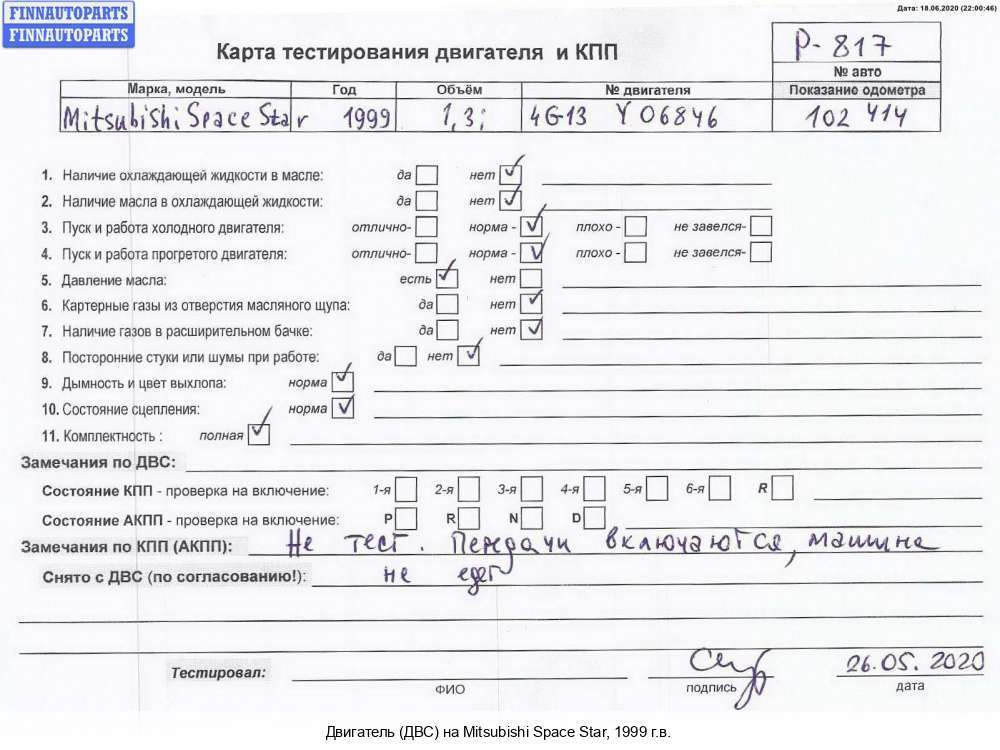 FINNAUTOPARTS
FINNAUTOPARTS
Дата: 18.06.2020 (22:00:46)
Карта тестирования двигателя и КПП
P-817
№ авто
Марка, модель Год Объём № двигателя Показание одометра
Mitsubishi Space Star 1999 1,3i 4G13 Y06846 102 414
1. Наличие охлаждающей жидкости в масле: да нет
2. Наличие масла в охлаждающей жидкости: да нет
3. Пуск и работа холодного двигателя: отлично- норма - плохо - не завелся-
4. Пуск и работа прогретого двигателя: отлично- норма - плохо - не завелся-
5. Давление масла: есть нет
6. Картерные газы из отверстия масляного щупа: да нет
7. Наличие газов в расширительном бачке: да нет
8. Посторонние стуки или шумы при работе: да нет
9. Дымность и цвет выхлопа: норма
10. Состояние сцепления: норма
11. Комплектность : полная
Замечания по ДВС:
Состояние КПП - проверка на включение: 1-я 2-я 3-я 4-я 5-я 6-я R
Состояние АКПП - проверка на включение: P R N D
Замечания по КПП (АКПП): Не тест. Передачи включаются, машина
Снято с ДВС (по согласованию!): не едет
Тестировал: 26.05.2020
ФИО подпись дата
Двигатель (ДВС) на Mitsubishi Space Star, 1999 г.в.